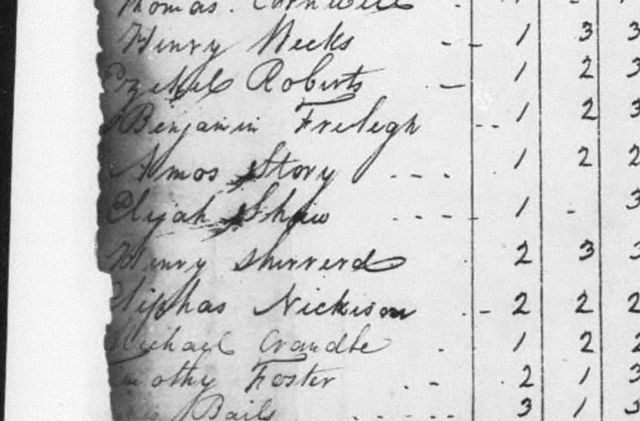 Thomas. Cornwell
Henry Weeks - - 1 3 3
Ezekel Roberts - 1 2 3
Benjamin Freligh - - 1 2 3
Amos Story - - - 1 2 2
Elijah Shaw - - - - 1 - 3
Henry Sherrerd 2 3 3
Eliphas Nickison - - 2 2 2
Michael Crandle - 1 2 2
Timothy Foster - - 2 1 3
Bails - - - - - 3 1 3